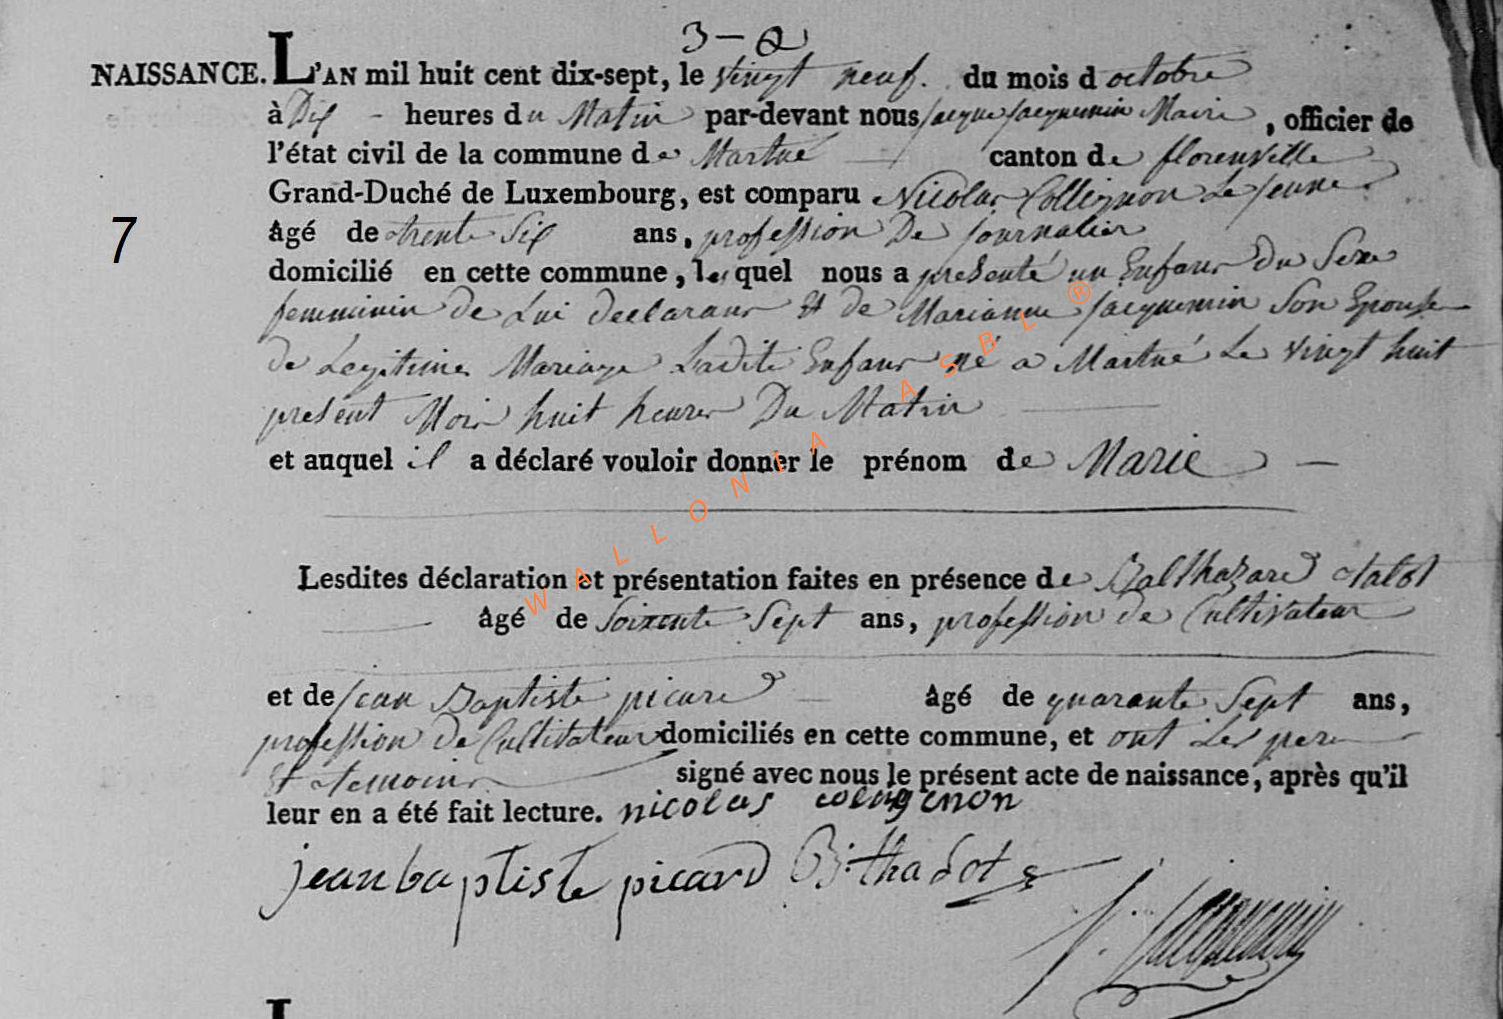 3 - 2
NAISSANCE. L'AN mil huit cent dix-sept, le vingt neuf. du mois d octobre
à Dix - heures du Matin par-devant nous jacque jacquemin Maire, officier de
l'état civil de la commune de Martué canton de florenville
Grand-Duché de Luxembourg, est comparu Nicolas Collignon Le jeune
7
âgé de trente Six ans, profession De journalier
domicilié en cette commune, lequel nous a presenté un Enfant Du Sexe
femminin de Lui declarant Et de Marianne jacquemin Son Epouse
de Legitime Mariage Ladite Enfant né a Martué Le vingt huit
present Mois huit heures Du Matin
et auquel il a déclaré vouloir donner le prénom de Marie
Lesdites déclaration et présentation faites en présence de Balthazard
âgé de Soixente Sept ans, profession de Cultivateur
et de jean Baptiste picard âgé de quarante Sept ans,
profession de Cultivateur domiciliés en cette commune, et ont Les pere
Et temoins signé avec nous le présent acte de naissance, après qu'il
leur en a été fait lecture. nicolas colignon
jean baptiste picard B: thadot
j: jacquemin
L
WALLONIA ASBL ®